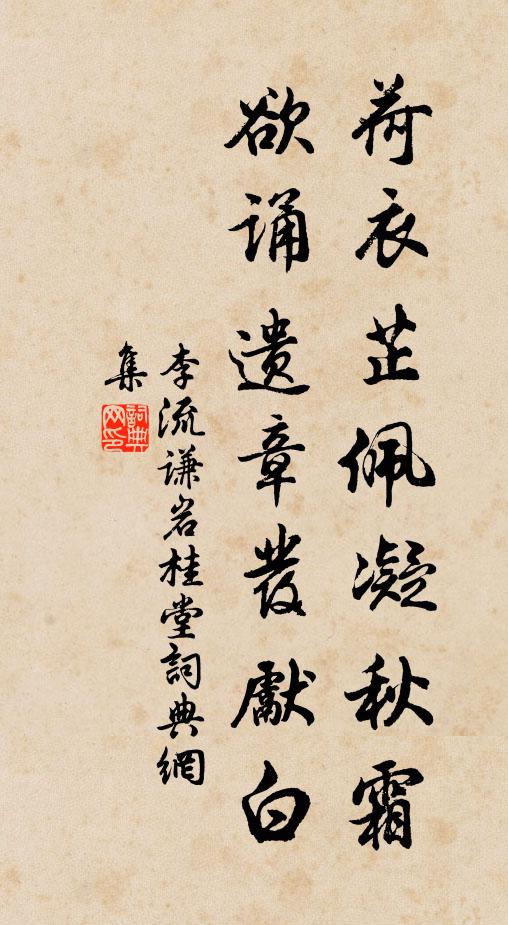 荷衣芷佩凝秋霜
欲诵遗章发獻白
李流谦岩桂堂詞典網
集
詞典
网印